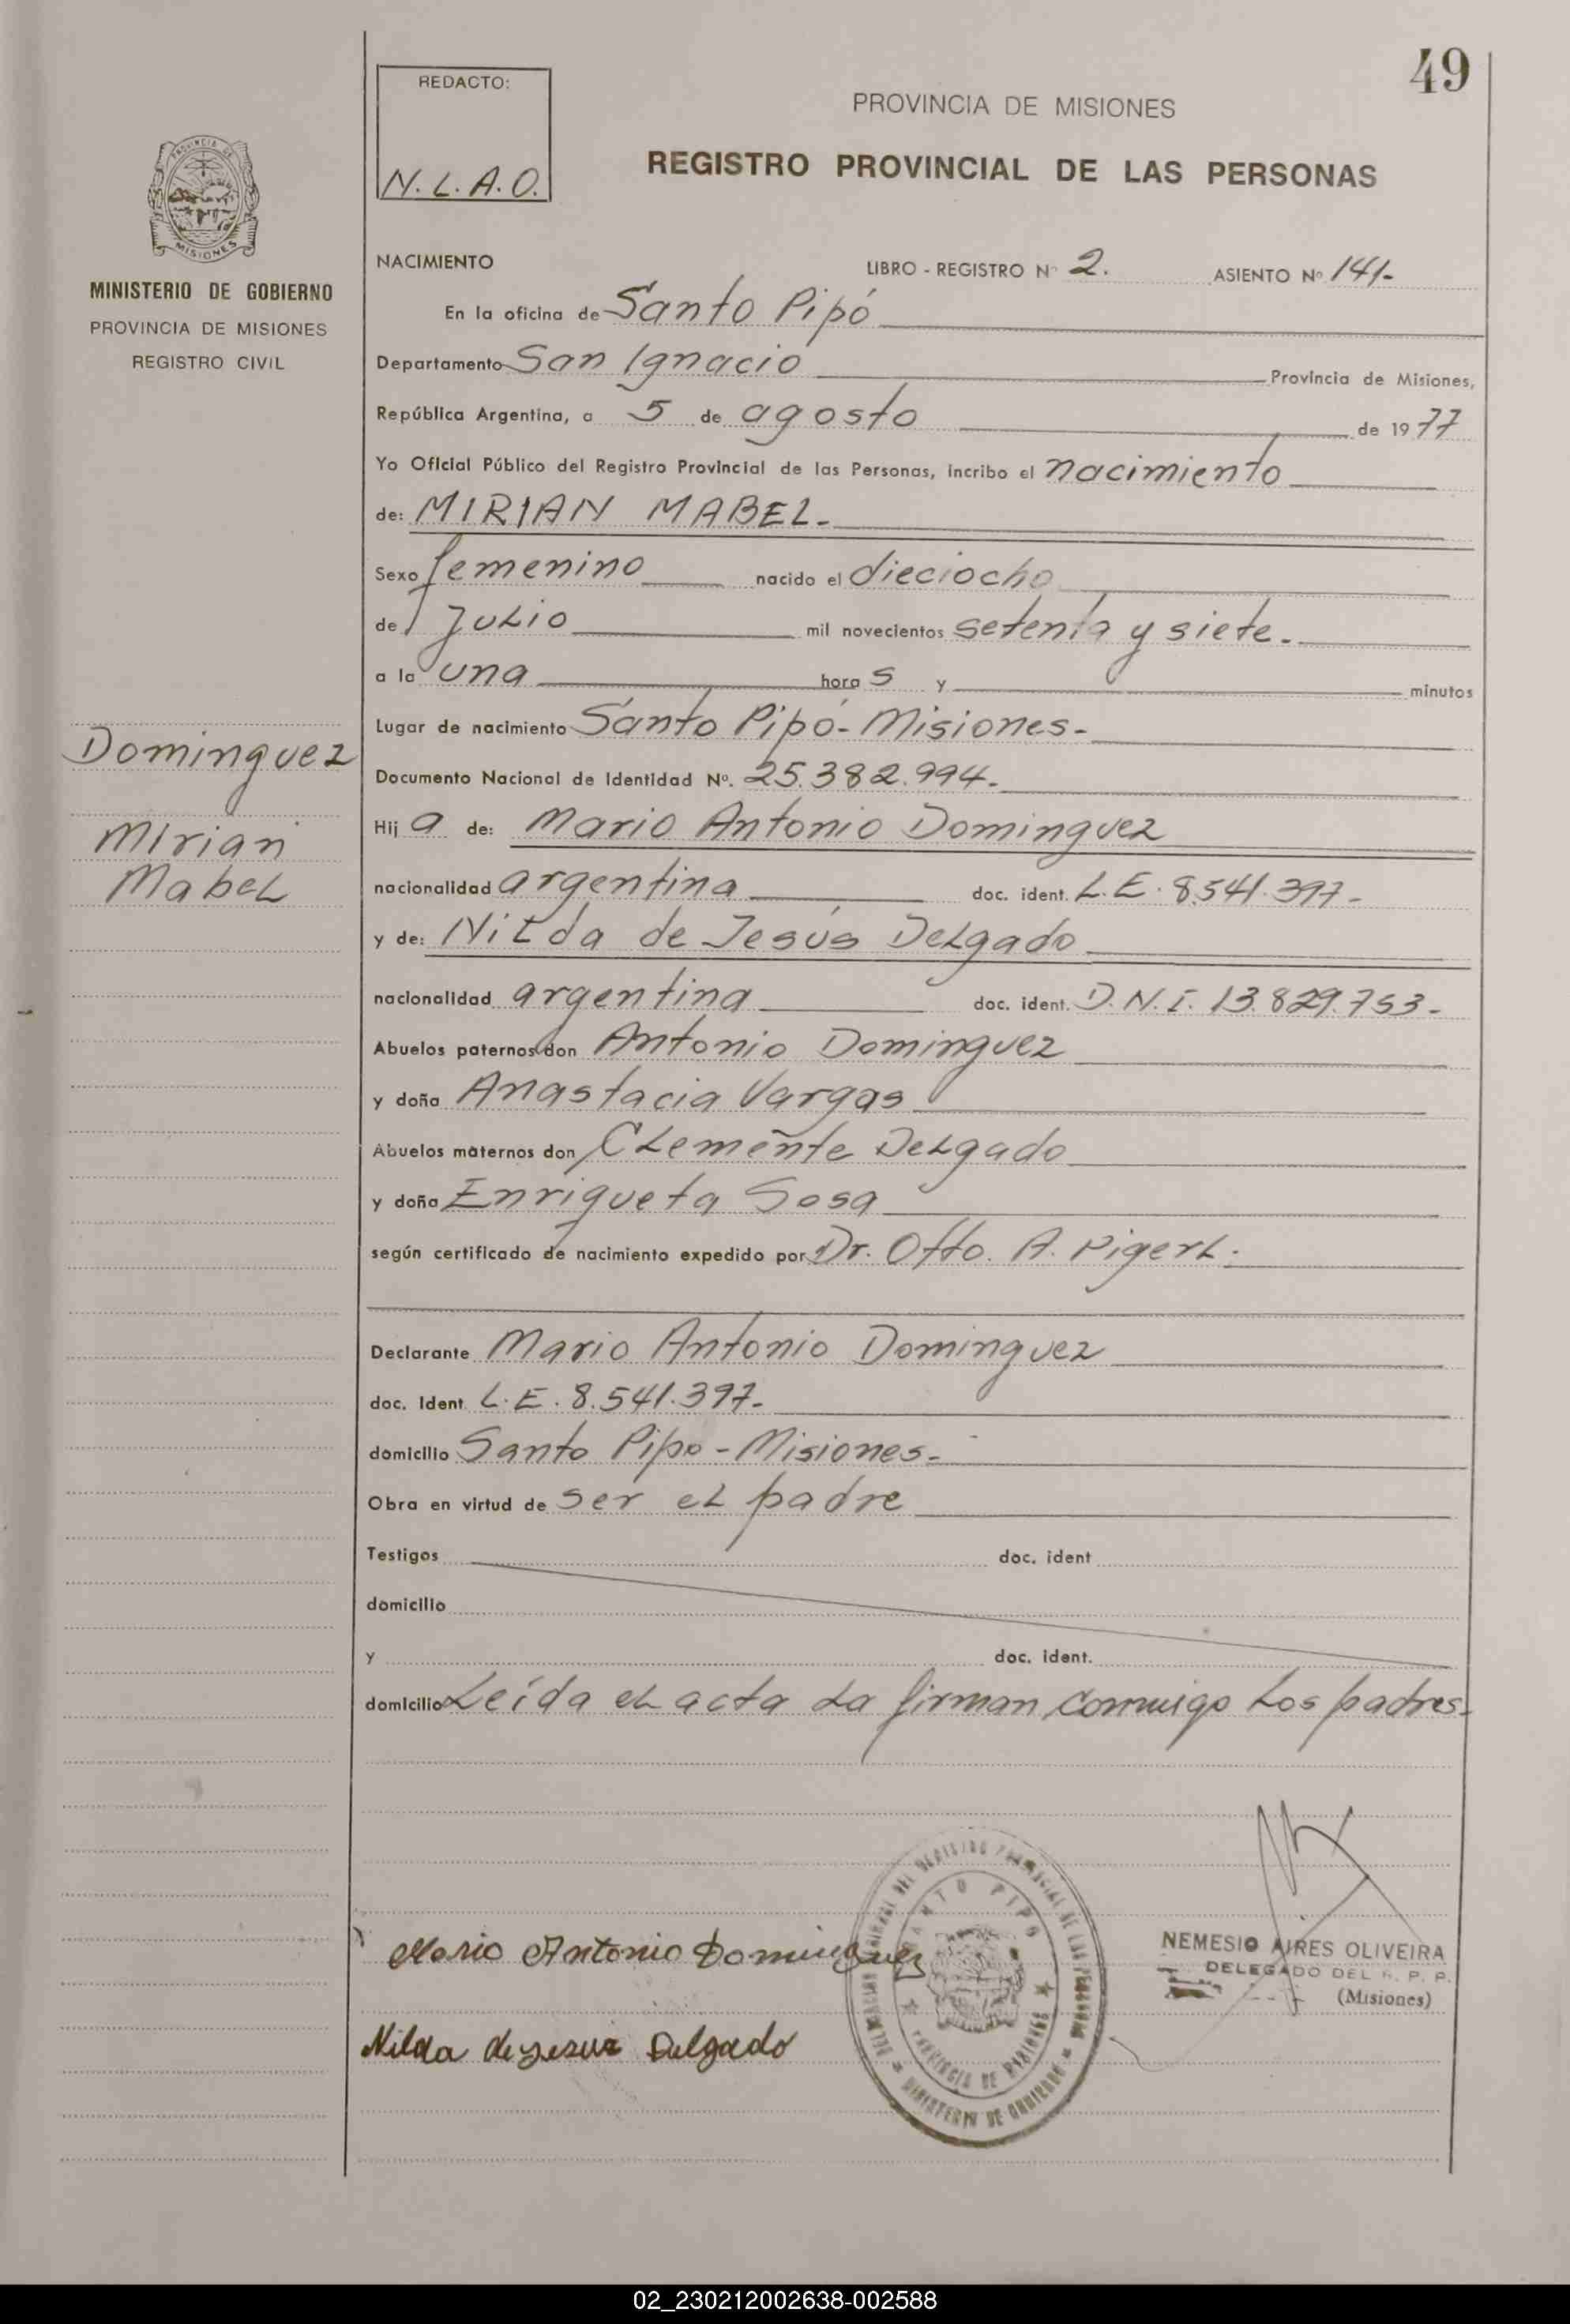 49
REDACTO:
N.L.A.O.
PROVINCIA DE MISIONES
REGISTRO PROVINCIAL DE LAS PERSONAS
PROVINCIA DE
MISIONES
MINISTERIO DE GOBIERNO
PROVINCIA DE MISIONES
REGISTRO CIVIL
NACIMIENTO LIBRO - REGISTRO Nº 2. ASIENTO Nº 141-
En la oficina de Santo Pipó
Departamento San Ignacio Provincia de Misiones,
República Argentina, a 5 de agosto de 1977
Yo Oficial Público del Registro Provincial de las Personas, incribo el nacimiento
de: MIRIAN MABEL-
Sexo femenino nacido el dieciocho
de Julio mil novecientos setenta y siete-
a la una horas y minutos
Lugar de nacimiento Santo Pipó-Misiones-
Documento Nacional de Identidad Nº. 25.382.994-
Hija de: Mario Antonio Dominguez
nacionalidad argentina doc. ident. L.E. 8.541.397-
y de: Nilda de Jesús Delgado
nacionalidad argentina doc. ident. D.N.I. 13.829.753-
Abuelos paternos don Antonio Dominguez
y doña Anastacia Vargas
Abuelos maternos don Clemente Delgado
y doña Enriqueta Sosa
según certificado de nacimiento expedido por Dr. Otto. A. Pigerl.
Declarante Mario Antonio Dominguez
doc. Ident. L.E. 8.541.397-
domicilio Santo Pipo-Misiones-
Obra en virtud de ser el padre
Testigos doc. ident
domicilio
y doc. ident.
domicilio Leída el acta la firman conmigo los padres-
Dominguez
Mirian
Mabel
Mario Antonio Dominguez
Nilda de jesus Delgado
SANTO PIPO
PROVINCIA DE MISIONES
MINISTERIO DE GOBIERNO
NEMESIO AIRES OLIVEIRA
DELEGADO DEL R. P. P.
(Misiones)
02_230212002638-002588